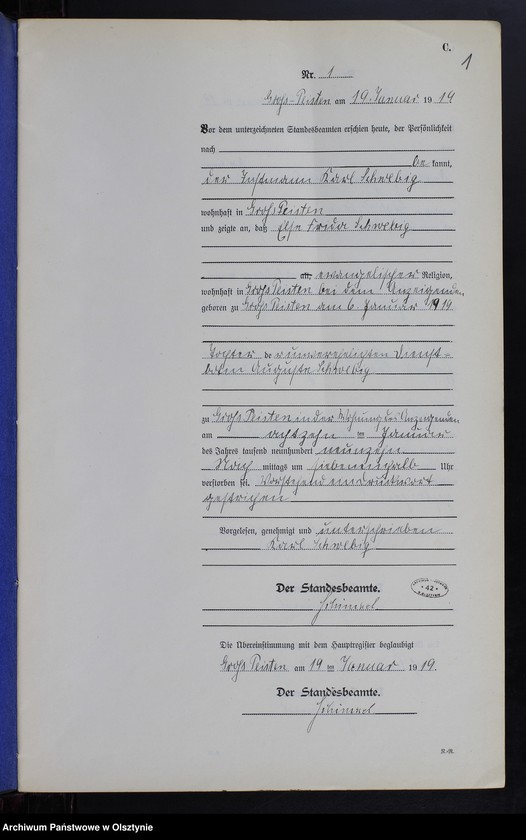 C.
1
Nr. 1
Groß-Peisten am 19. Januar 19 19
Vor dem unterzeichneten Standesbeamten erschien heute, der Persönlichkeit
nach
be kannt,
der Instmann Karl Schwebig
wohnhaft in Groß Peisten
und zeigte an, daß Else Frida Schwebig
alt, evangelischer Religion,
wohnhaft in Groß Peisten bei dem Anzeigenden,
geboren zu Groß Peisten am 6. Januar 1919
Tochter der unverehelichten Dienst-
botin Auguste Schwebig
zu Groß Peisten in der Wohnung des Anzeigenden
am achtzehn ten Januar
des Jahres tausend neunhundert neunzehn
Nach mittags um siebeneinhalb Uhr
verstorben sei. Vorstehend ein Druckwort
gestrichen
Vorgelesen, genehmigt und unterschrieben
Karl Schwebig
Der Standesbeamte.
42
Die Übereinstimmung mit dem Hauptregister beglaubigt
Groß Peisten am 19 ten Januar 19 19.
Der Standesbeamte.
Archiwum Państwowe w Olsztynie